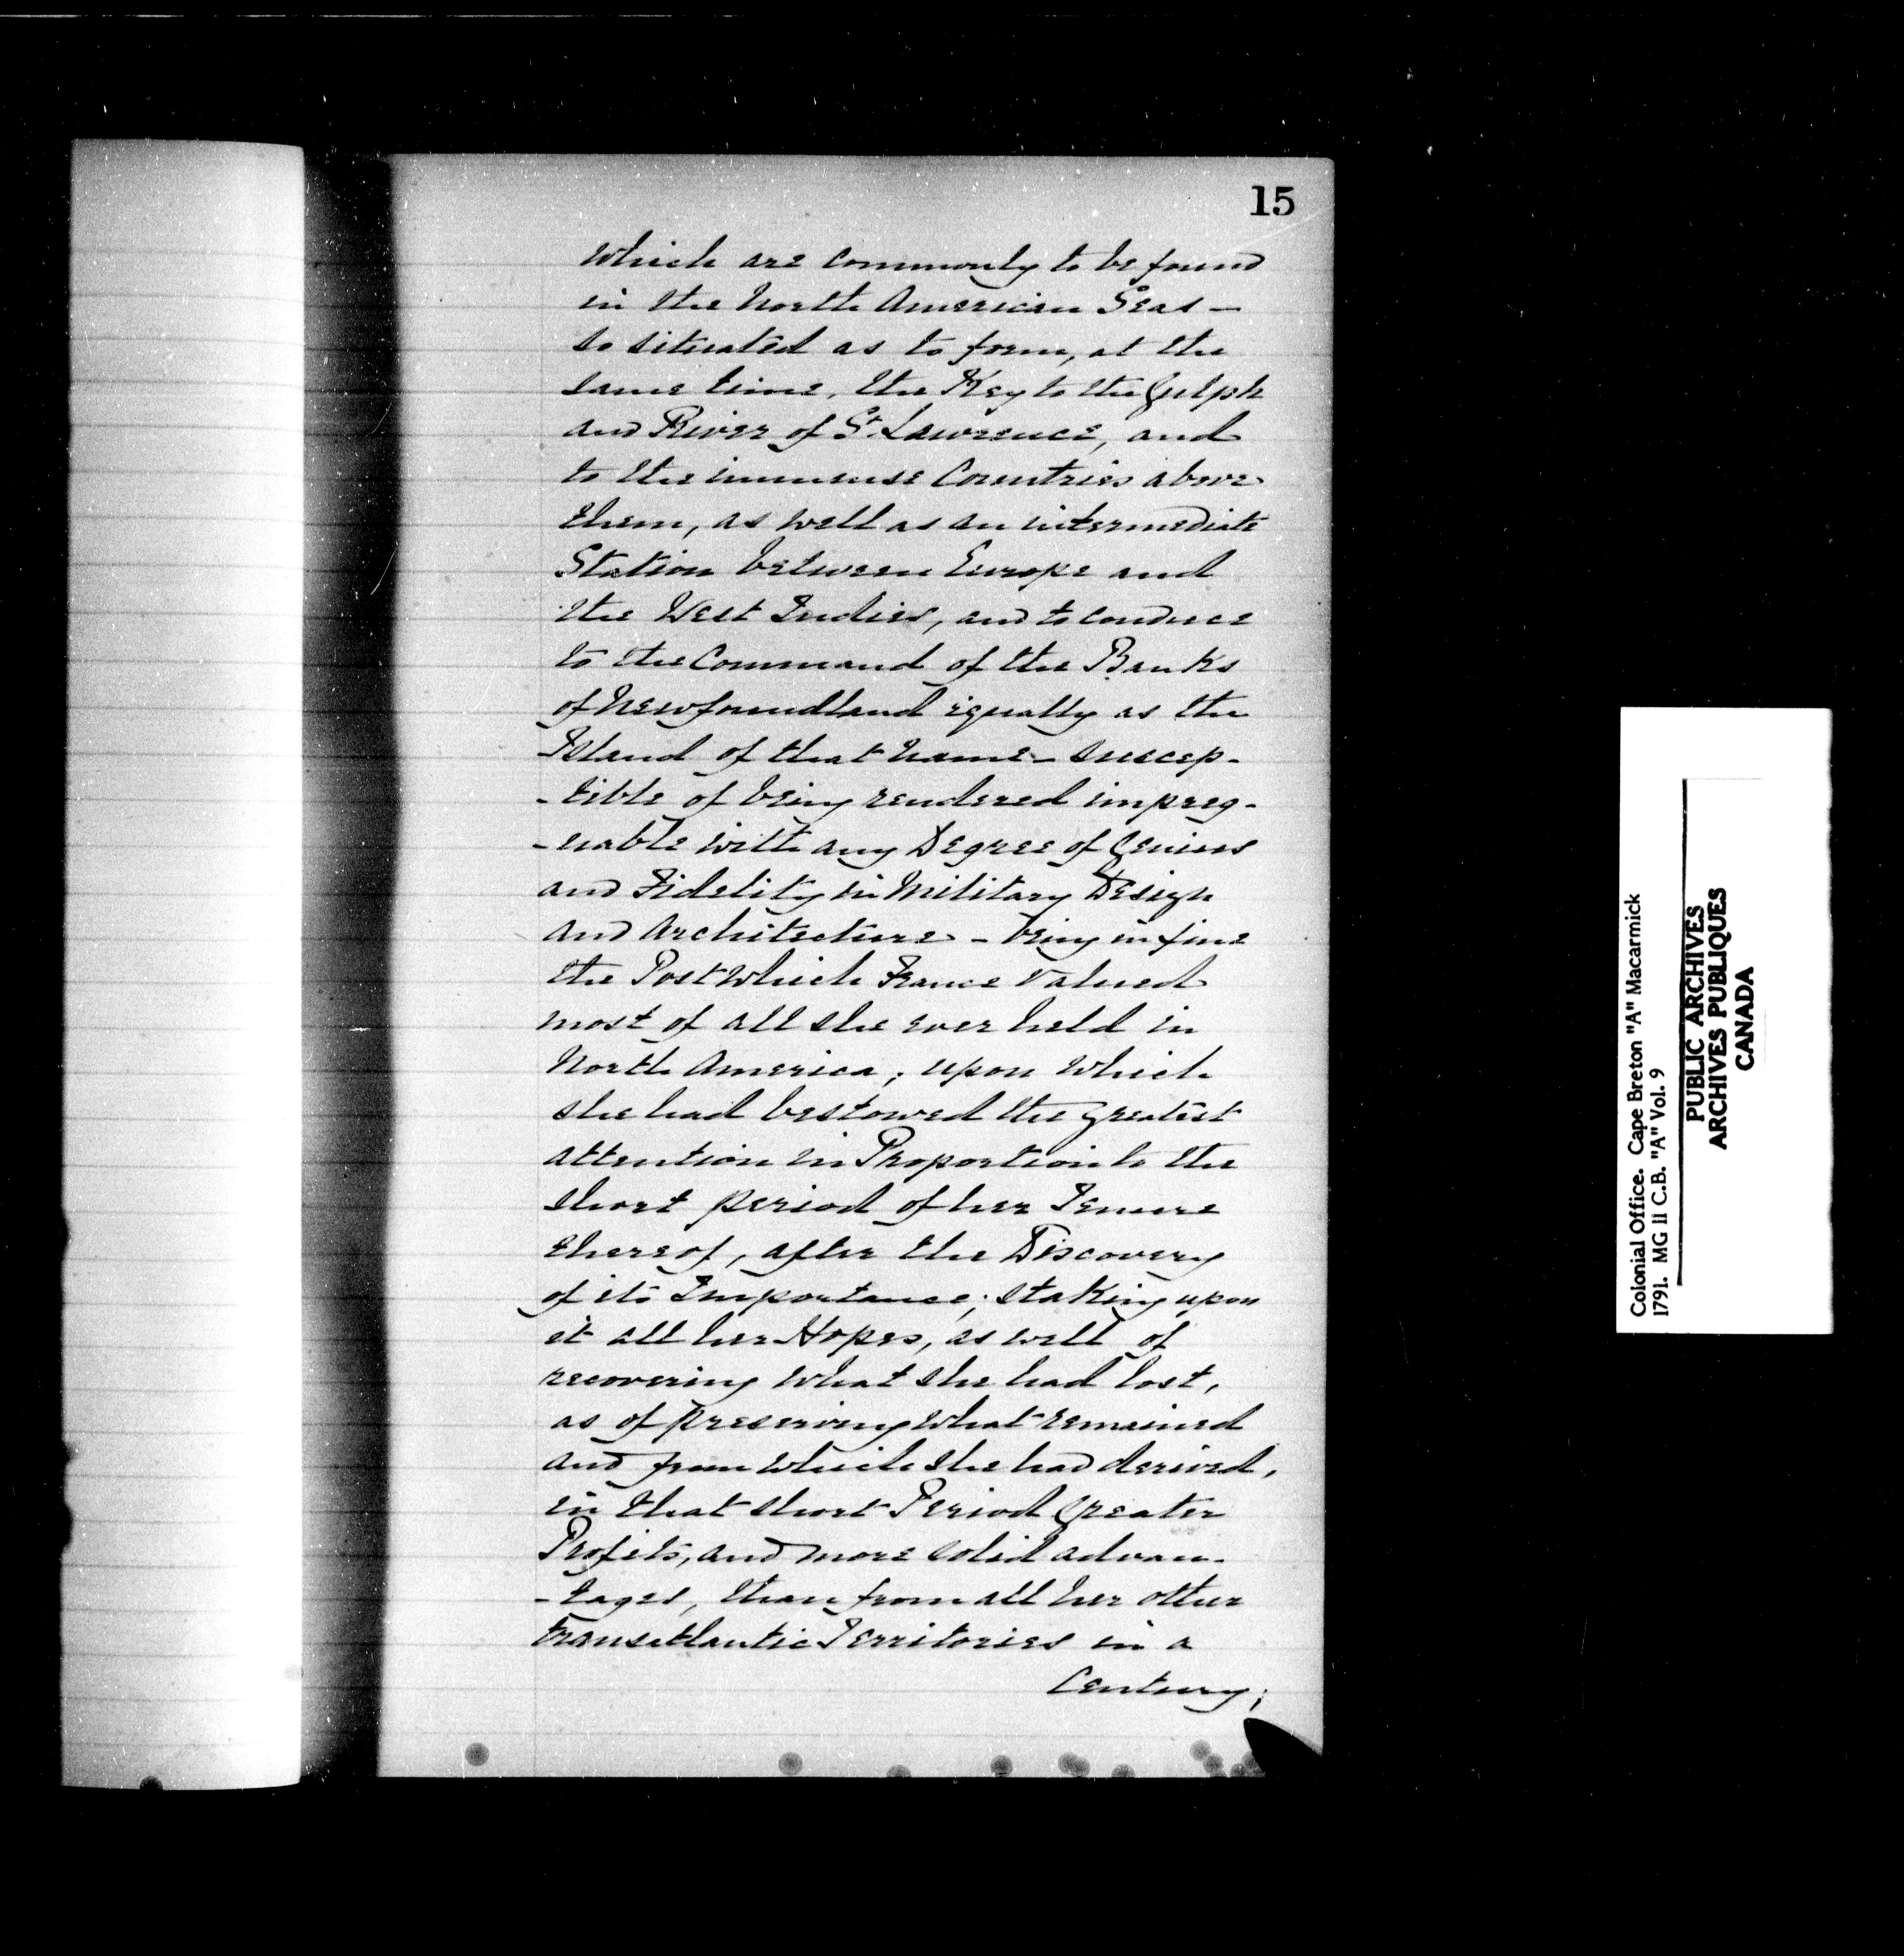 15
which are commonly to be found
in the North American Seas –
so situated as to form, at the
same time, the Key to the Gulph
and River of St Lawrence, and
to the immense Countries above
them, as well as an intermediate
Station between Europe and
the West Indies, and to conduce
to the Command of the Banks
of Newfoundland equally as the
Island of that name – suscep-
-tible of being rendered impreg-
-nable with any Degree of Genius
and Fidelity in Military Design
and Architecture – being in fine
the Post which France valued
most of all she ever held in
North America; upon which
she had bestowed the greatest
attention in Proportion to the
short period of her Tenure
thereof, after the Discovery
of its Importance; staking upon
it all her Hopes, as well of
recovering what she had lost,
as of preserving what remained
and from which she had derived,
in that short Period Greater
Profits, and more solid advan-
-tages, than from all her other
transatlantic Territories in a
Century;
Colonial Office. Cape Breton "A" Macarmick
1791. MG 11 C.B. "A" Vol. 9
PUBLIC ARCHIVES
ARCHIVES PUBLIQUES
CANADA